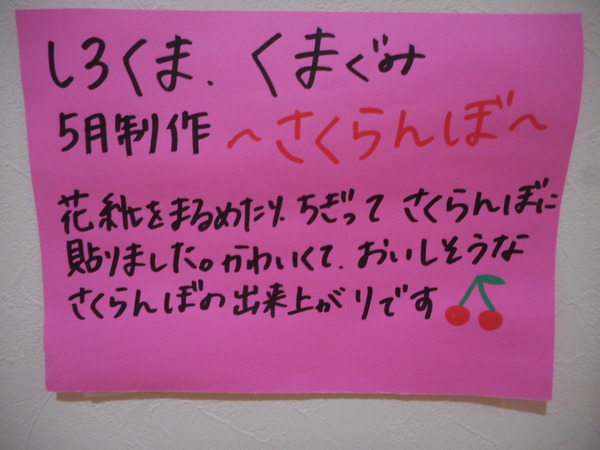 しろくま、くまぐみ
5月制作 〜さくらんぼ〜
花紙をまるめたり、ちぎって さくらんぼに
貼りました。かわいくて、おいしそうな
さくらんぼの出来上がりです